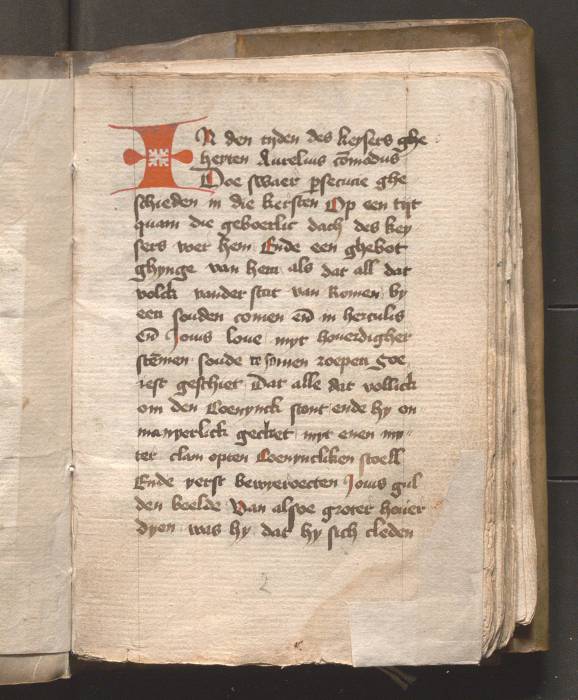 In den tyden des keysers ghe
heyten Aurelius cōmodus
Doe swaer psecucie ghe
schieden in die kersten Op een tyt
quam die geboerlic dach des key
sers voer hem Ende een ghebot
ghynge van hem als dat all dat
volck vander stat van Romen by
een souden comen en̄ in herculis
en̄ Jouis loue myt houerdigher
stēmen soude te somen roepen Soe
ist geschiet Dat alle dat vollick
om den Coenynck stont ende hy on
manyerlick gecleet myt enen my
ter clam opten Coenyncliken stoell
Ende yerst bewyeroecten Jouis gul
den beelde Van alsoe groter houer
dyen was hy dat hy sich cleden
2